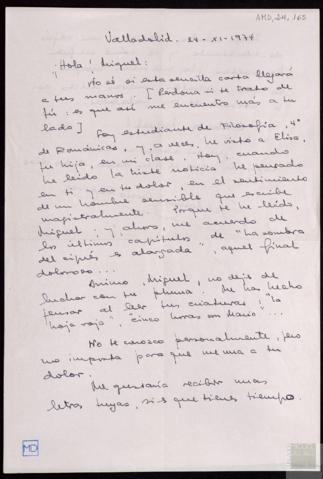 AMD, 24, 165
Valladolid. 24-XI-1974
¡Hola! Miguel:
No sé si esta sencilla carta llegará
a tus manos. [Perdona si te trato de
tú: es que así me encuentro más a tu
lado] Soy estudiante de Filosofía, 4º
de Románicas, y, a veces, he visto a Elisa,
tu hija, en mi clase. Hoy, cuando
he leído la triste noticia he pensado
en ti y en tu dolor, en el sentimiento
de un hombre sensible que escribe
magistralmente. Porque te he leído,
Miguel; y ahora, me acuerdo de
los últimos capítulos de "La sombra
del ciprés es alargada", aquel final
doloroso...
Animo, Miguel, no dejes de
luchar con tu pluma. Me has hecho
pensar al leer tus criaturas: "la
hoja roja", "cinco horas con Mario"...
No te conozco personalmente, pero
no importa para que me una a tu
dolor.
Me gustaría recibir unas
letras tuyas, si es que tienes tiempo.
MD